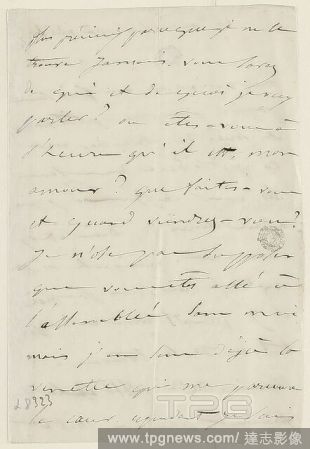 plus précis parce que je ne le
trouve jamais. vous savez
de qui et de quoi je veux
parler? où êtes-vous à
l'heure qu'il est, mon
amour? que faites-vous
et quand viendrez-vous?
Je n'ose pas supposer
que vous êtes allé à
l'assemblée sans moi
mais j'en sens déjà la
qui me
le cœur
28323
TPG
www.tpgnews.com/達志影像